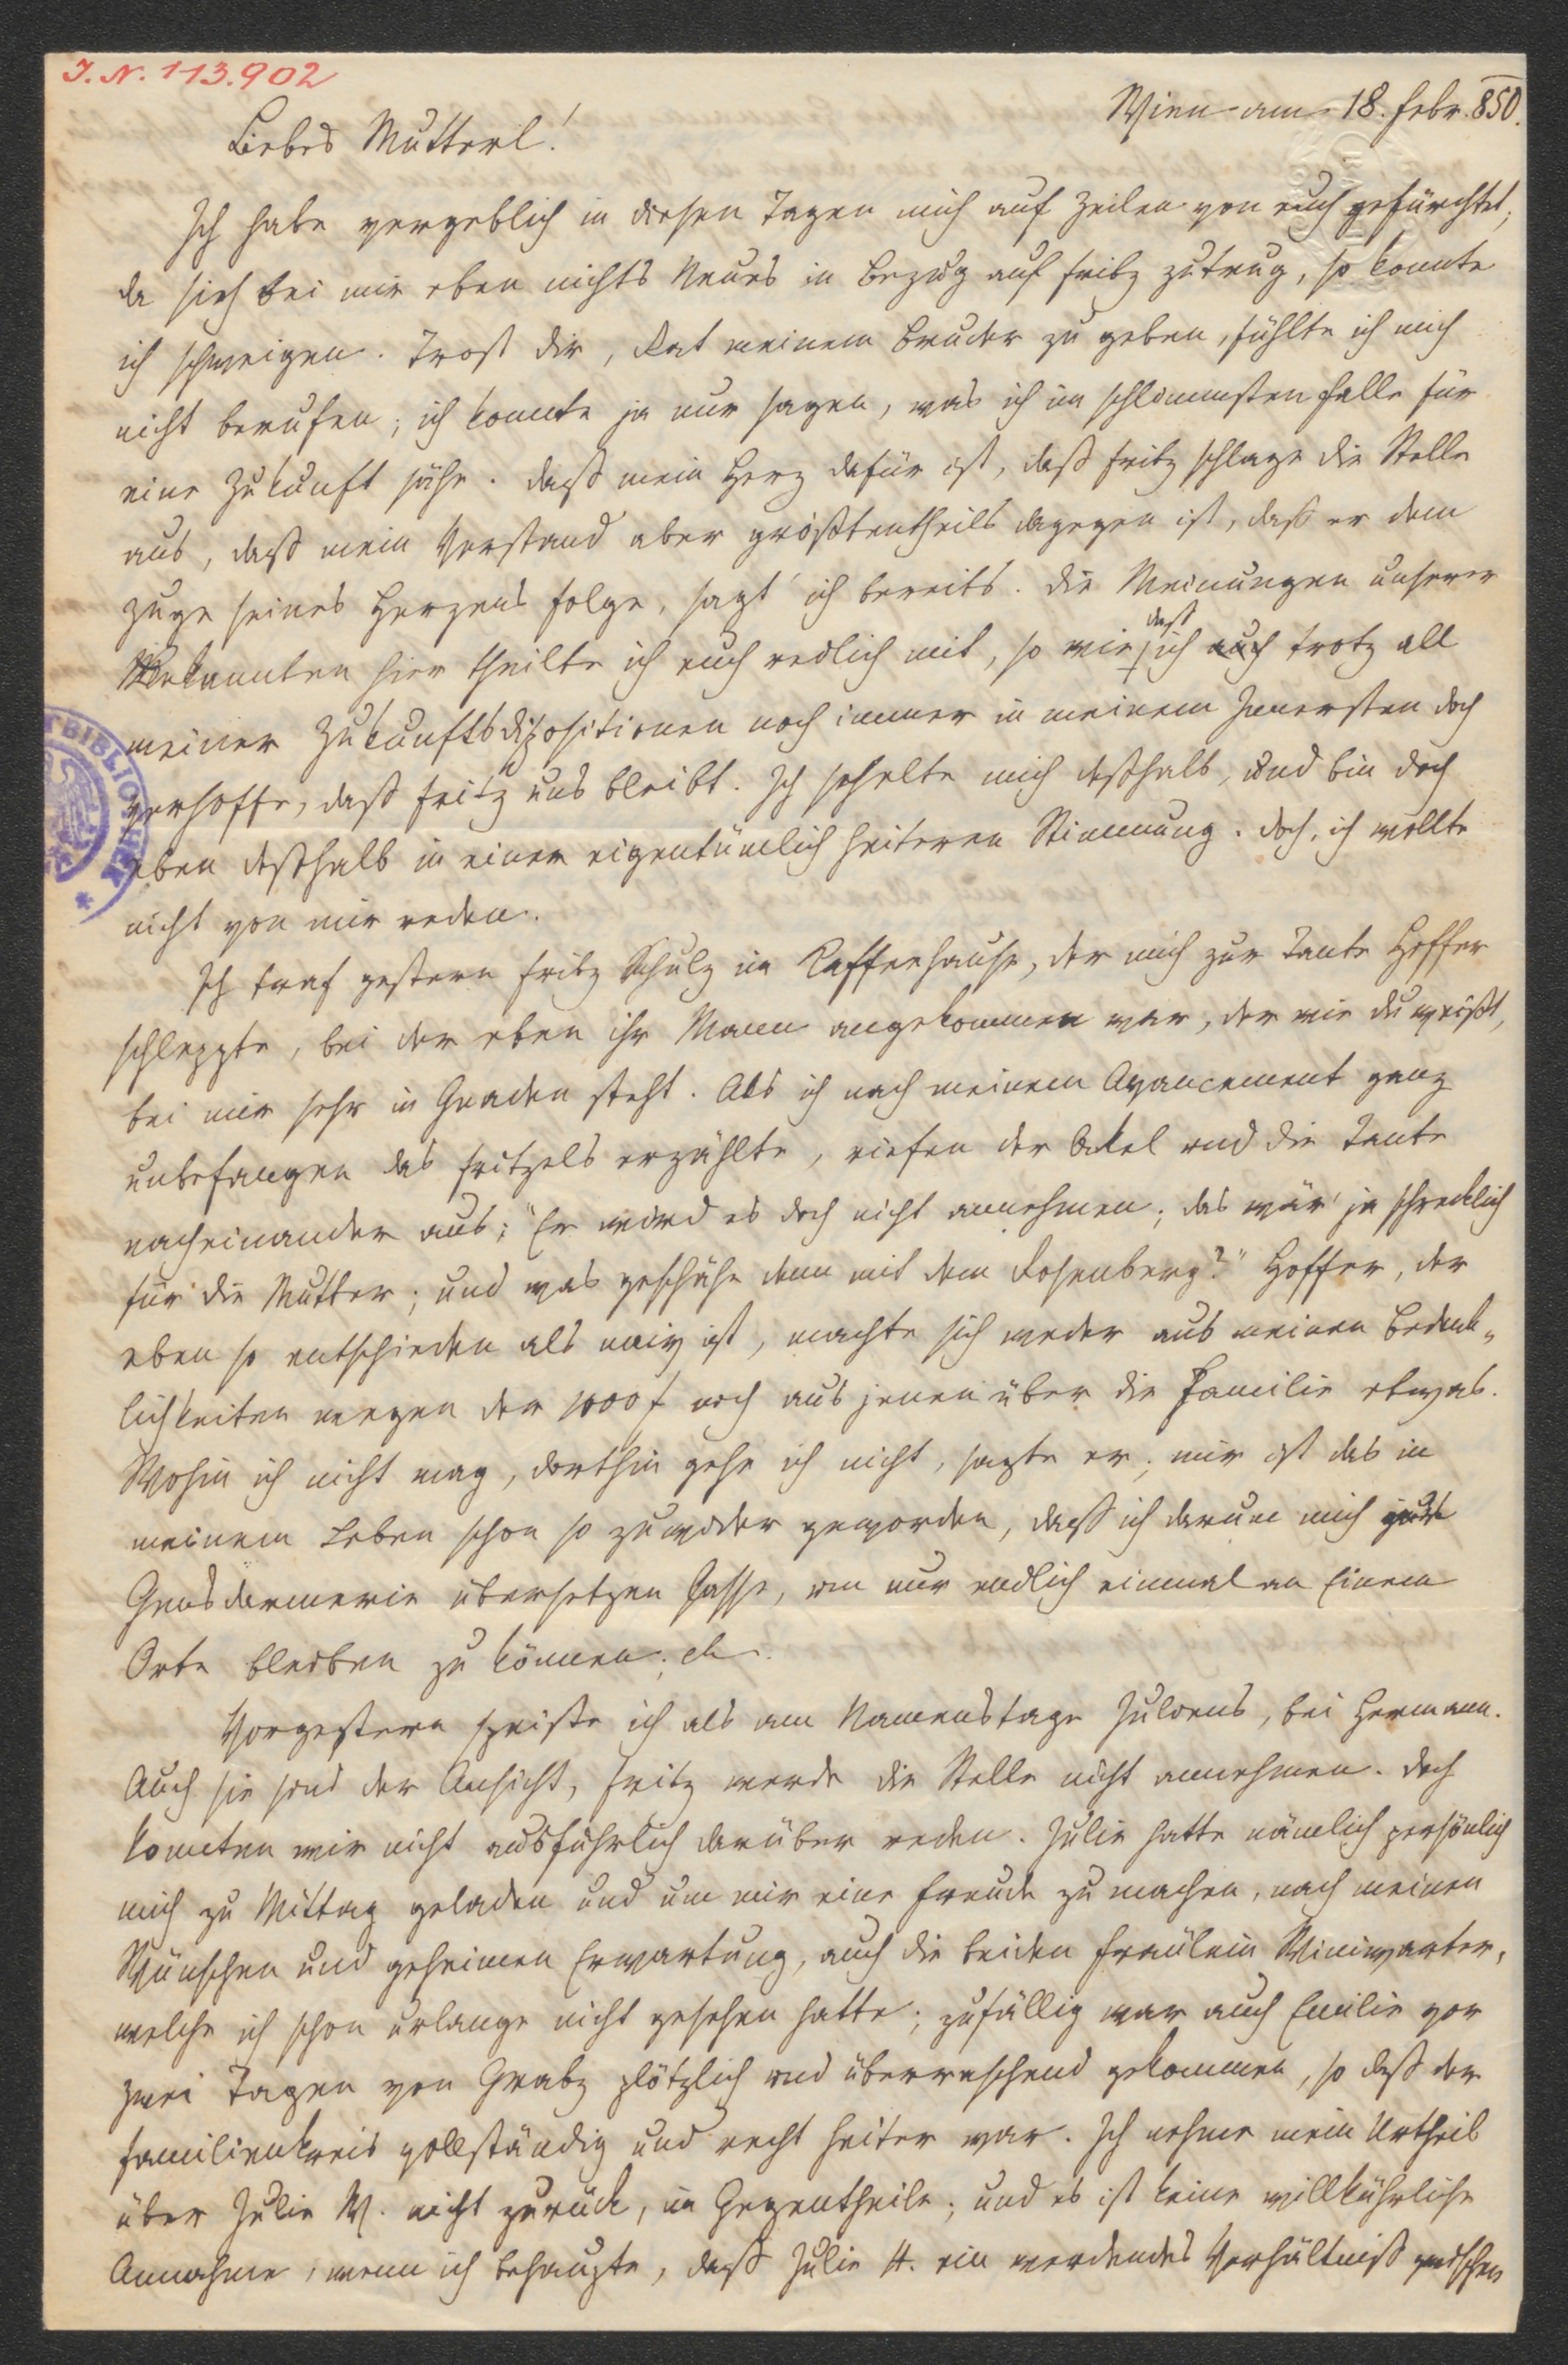 I. N. 113.902
Wien am 18. Febr. 850.
Liebes Mutterl!
Ich habe vergeblich in diesen Tagen mich auf Zeilen von euch gefürchtet,
da sich bei mir eben nichts Neues in Bezug auf Fritz zutrug, so konnte
ich schweigen. Trost dir, Rat meinem Bruder zu geben, fühlte ich mich
nicht berufen; ich konnte ja nur sagen, was ich im schlimmsten Falle für
eine Zukunft sähe. Daß mein Herz dafür ist, daß Fritz schlage die Stelle
aus, daß mein Verstand aber größtentheils dagegen ist, daß er dem
Zuge seines Herzens folge, sagt' ich bereits. Die Meinungen unserer
daß
Bekannten hier theilte ich euch redlich mit, so wie ich auch trotz all
meiner Zukunftsdispositionen noch immer in meinem Innersten doch
verhoffe, daß Fritz uns bleibt. Ich schelte mich deßhalb, und bin doch
eben deßhalb in einer eigentümlich heiteren Stimmung. Doch, ich wollte
nicht von mir reden.
Ich traf gestern Fritz Schulz im Kaffeehause, der mich zur Tante Hoffer
schleppte, bei der eben ihr Mann angekommen war, der wie du weißt,
bei mir sehr in Gnaden steht. Als ich nach meinem Avancement ganz
unbefangen das Fritzels erzählte, riefen der Onkel und die Tante
nacheinander aus: "Er wird es doch nicht annehmen; das wär' ja schrecklich
für die Mutter; und was geschähe denn mit dem Rosenberg?" Hoffer, der
eben so entschieden als naiv ist, machte sich weder aus meinen Bedenk„
lichkeiten wegen der 1000 f noch aus jenen über die Familie etwas.
Wohin ich nicht mag, dorthin gehe ich nicht, sagte er; mir ist das in
meinem Leben schon so zuwider geworden, daß ich darum mich zur
Gensdarmerie übersetzen lasse, um nur endlich einmal an Einem
Orte bleiben zu können; etc.
Vorgestern speiste ich als am Namenstage Juliens, bei Hermann.
Auch sie sind der Ansicht, Fritz werde die Stelle nicht annehmen. Doch
konnten wir nicht ausführlich darüber reden. Julie hatte nämlich persönlich
mich zu Mittag geladen und um mir eine Freude zu machen, nach meinen
Wünschen und geheimen Erwartung, auch die beiden Fräulein Winiwarter,
welche ich schon urlange nicht gesehen hatte; zufällig war auch Emilie vor
zwei Tagen von Gratz plötzlich und überraschend gekommen, so daß der
Familienkreis vollständig und recht heiter war. Ich nehme mein Urtheil
über Julie W. nicht zurück, im Gegentheile; und es ist keine willkührliche
Annahme, wenn ich behaupte, daß Julie H. ein werdendes Verhältniß zwischen